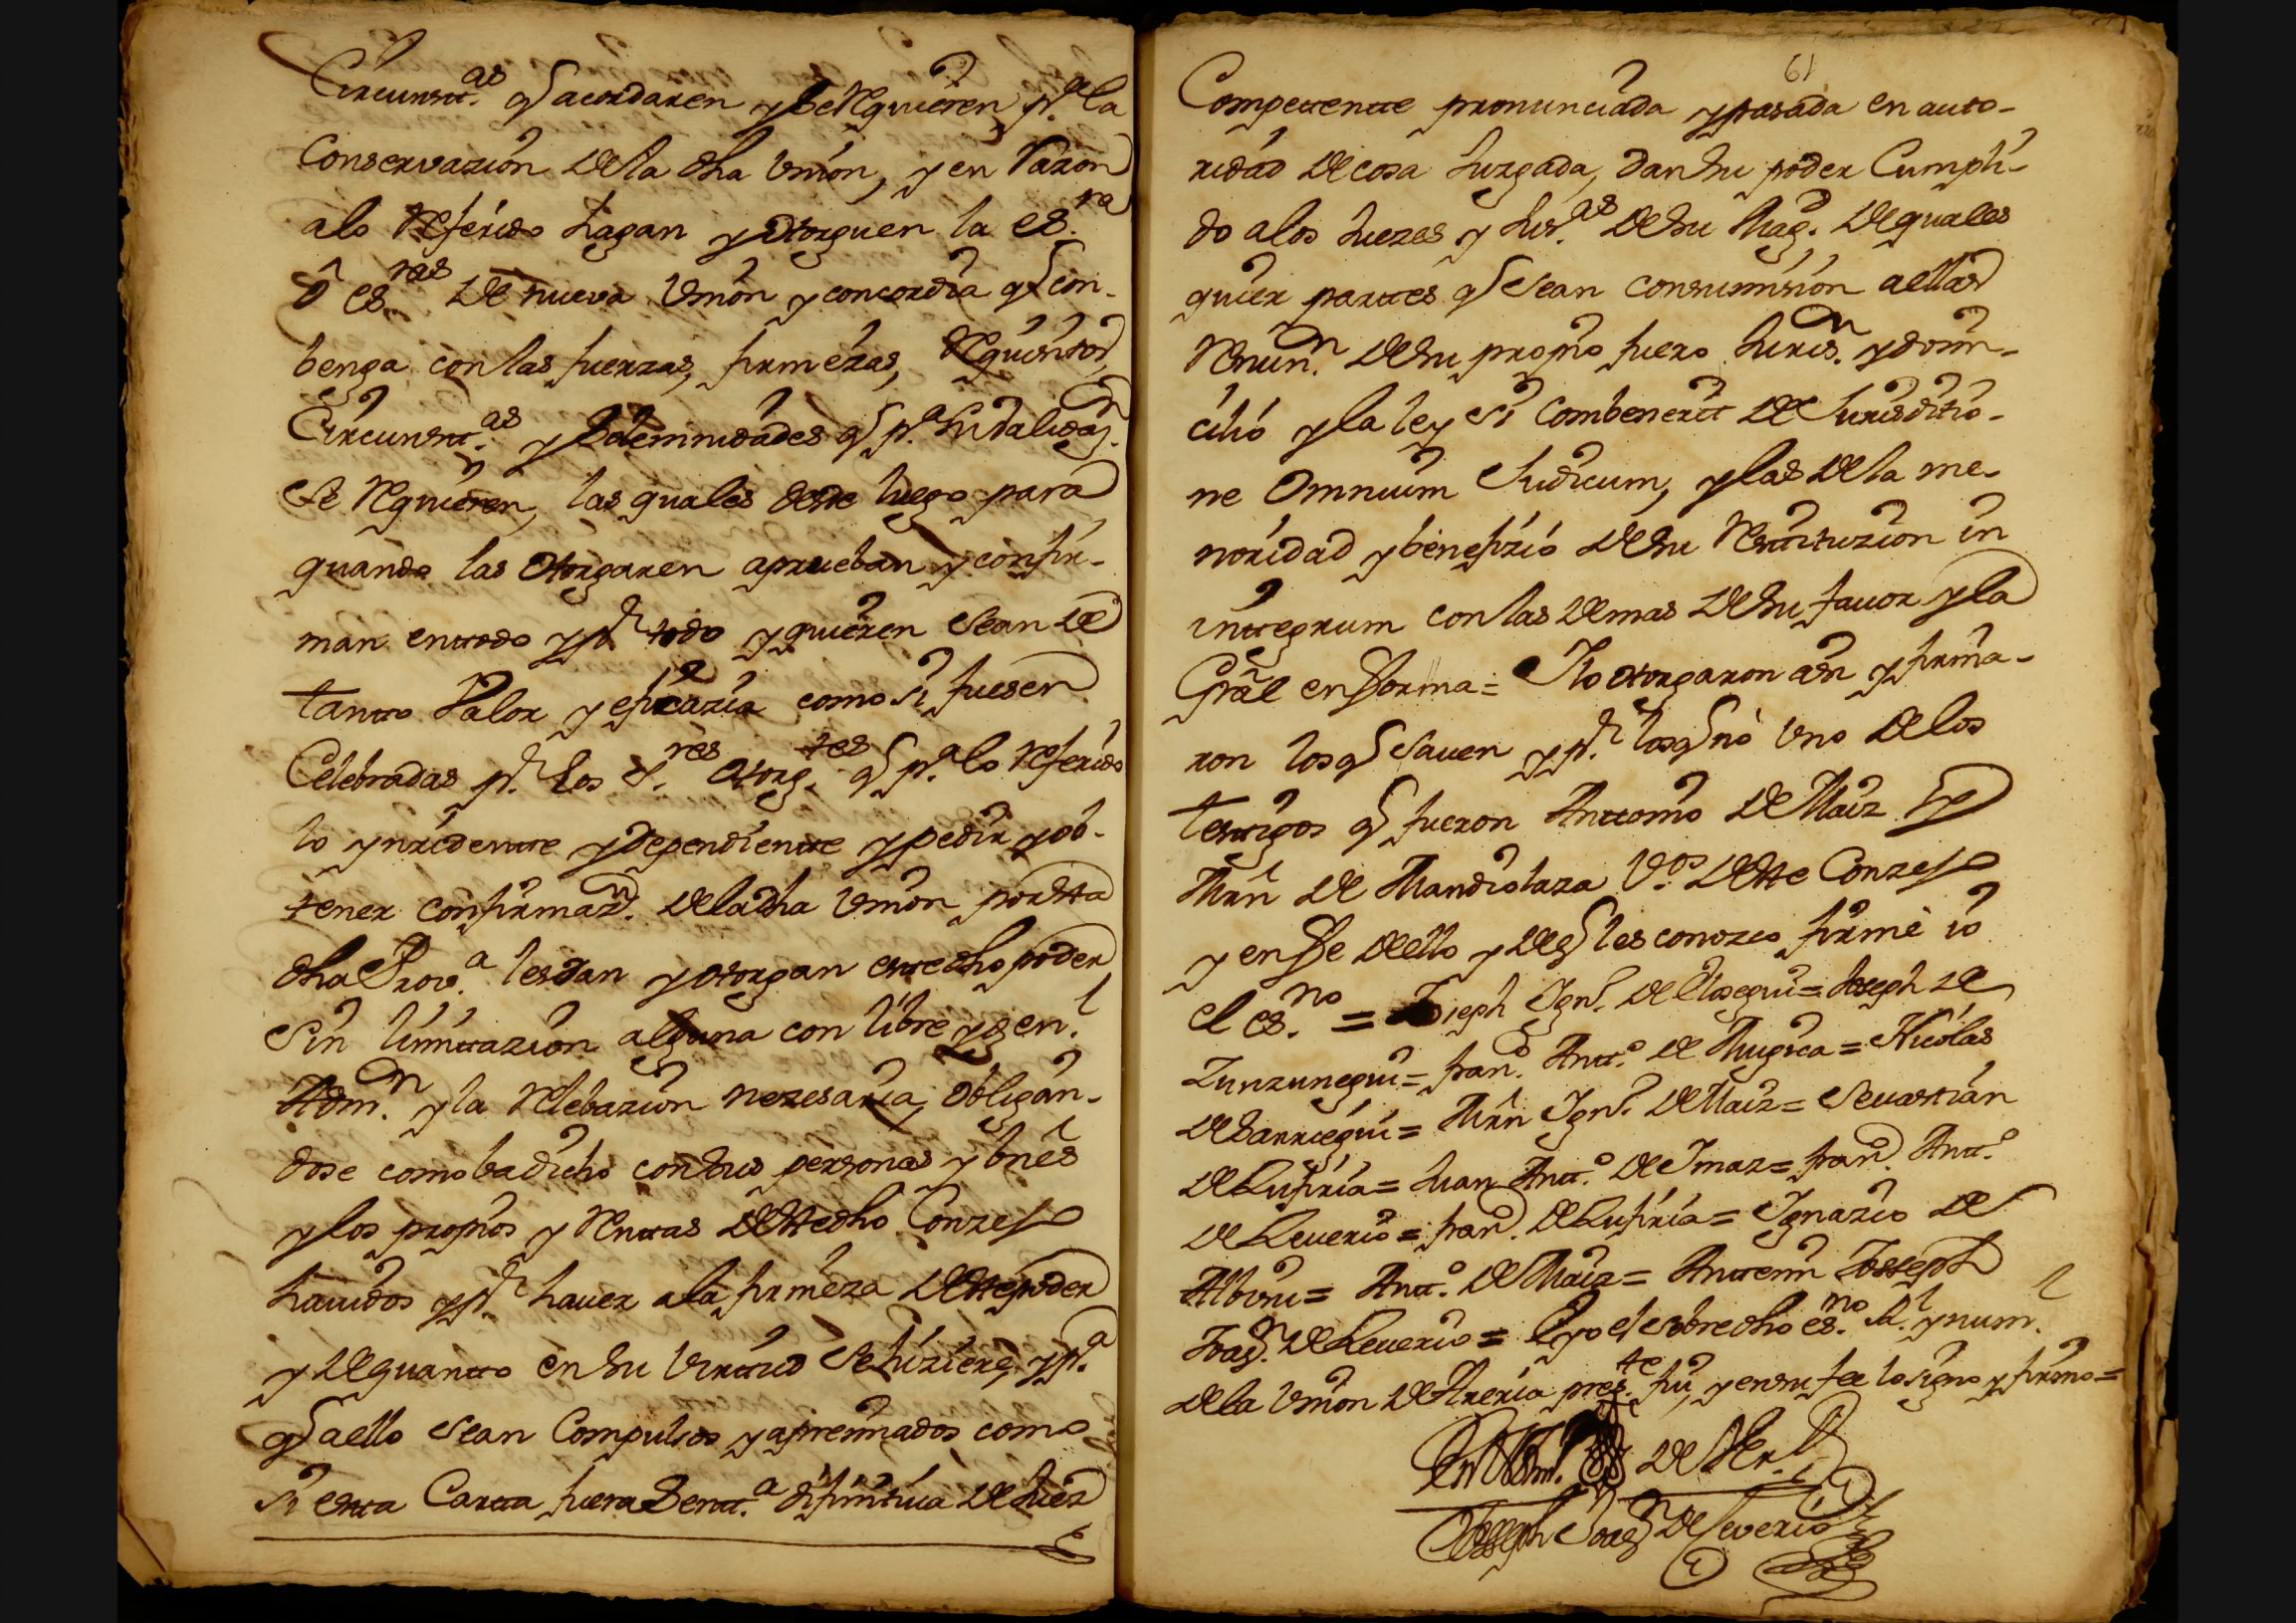 Circunst.as q acordaren y se requieren p.a la
Conservazion de la dha Vnion, y en Razon
alo referido hagan y otorguen la es.ra
ô es.ras de nueva Vnion y concordia q con-
benga con las fuerzas, firmezas, requisitos,
Circunst.as y Solemnidades q p.a su validaz.n
se requieren, las quales desde luego para
quando las otorgaren aprueban y confir-
man entodo y p.r todo y quieren sean de
tanto Valor y eficazia como si fuesen
Celebradas p.r los S.res otorg.tes q p.a lo referido
lo ynzidente y dependiente y pedir y ob-
tener confirmaz.n de la dha Vnion por esta
dha Prov.a les dan y otorgan este dho poder
sin limitazion alguna con libre y gen.l
Adm.n y la relebazion nezesaria, obligan-
dose como ba dicho con sus personas y bnês
y los propios y rentas deste dho Conzejo
hauidos y p.r hauer ala firmeza deste poder
y de quanto en su virtud se hiziere, y p.a
q aello sean Compulsos y apremiados como
si esta Carta fuera Sent.a difinitiua de Juez
61
Competente pronunciada y pasada en auto-
ridad de cosa Juzgada, dan su poder Cumpli-
do alos Juezes y Jus.as de su Mag.d de quales
quier partes q sean con sumision aellas
Renun.n de su propio fuero Juris.n y domi-
cilio y la ley si combenerit de Jurisditio-
ne Omnium Judicum, y las de la me-
noridad y benefizio de su Restituzion in
integrum con las demas de su fauor y la
Gral en forma = Y lo otorgaron asi y firma-
ron los q sauen y p.r los q no Vno de los
testigos q fueron Antonio de Maiz y
Mrñ de Mandiolaza V.os deste Conzejo
y en fe de ello y de q les conozco firmé io
el es.no = Joseph Ign.o de Elosegui = Joseph de
Zunzunegui = fran.o Ant.o de Mugica = Nicolas
de Barriegui = Mrñ Ign.o de Maiz = Seuastian
de Lufiria = Juan Ant.o de Imaz = fran.o Ant.o
de Leuerio = fran.o de Lufiria = Ignazio de
Albisu = Ant.o de Maiz = Antemi Josseph
Joaq.n de Leuerio = E yo el sobre dho es.no R.l y num.l
de la Vnion de Areria pres.te fui, y en su fee lo signo y firmo =
En testim.o de Ver.d
Josseph Joaq.n de Leverio